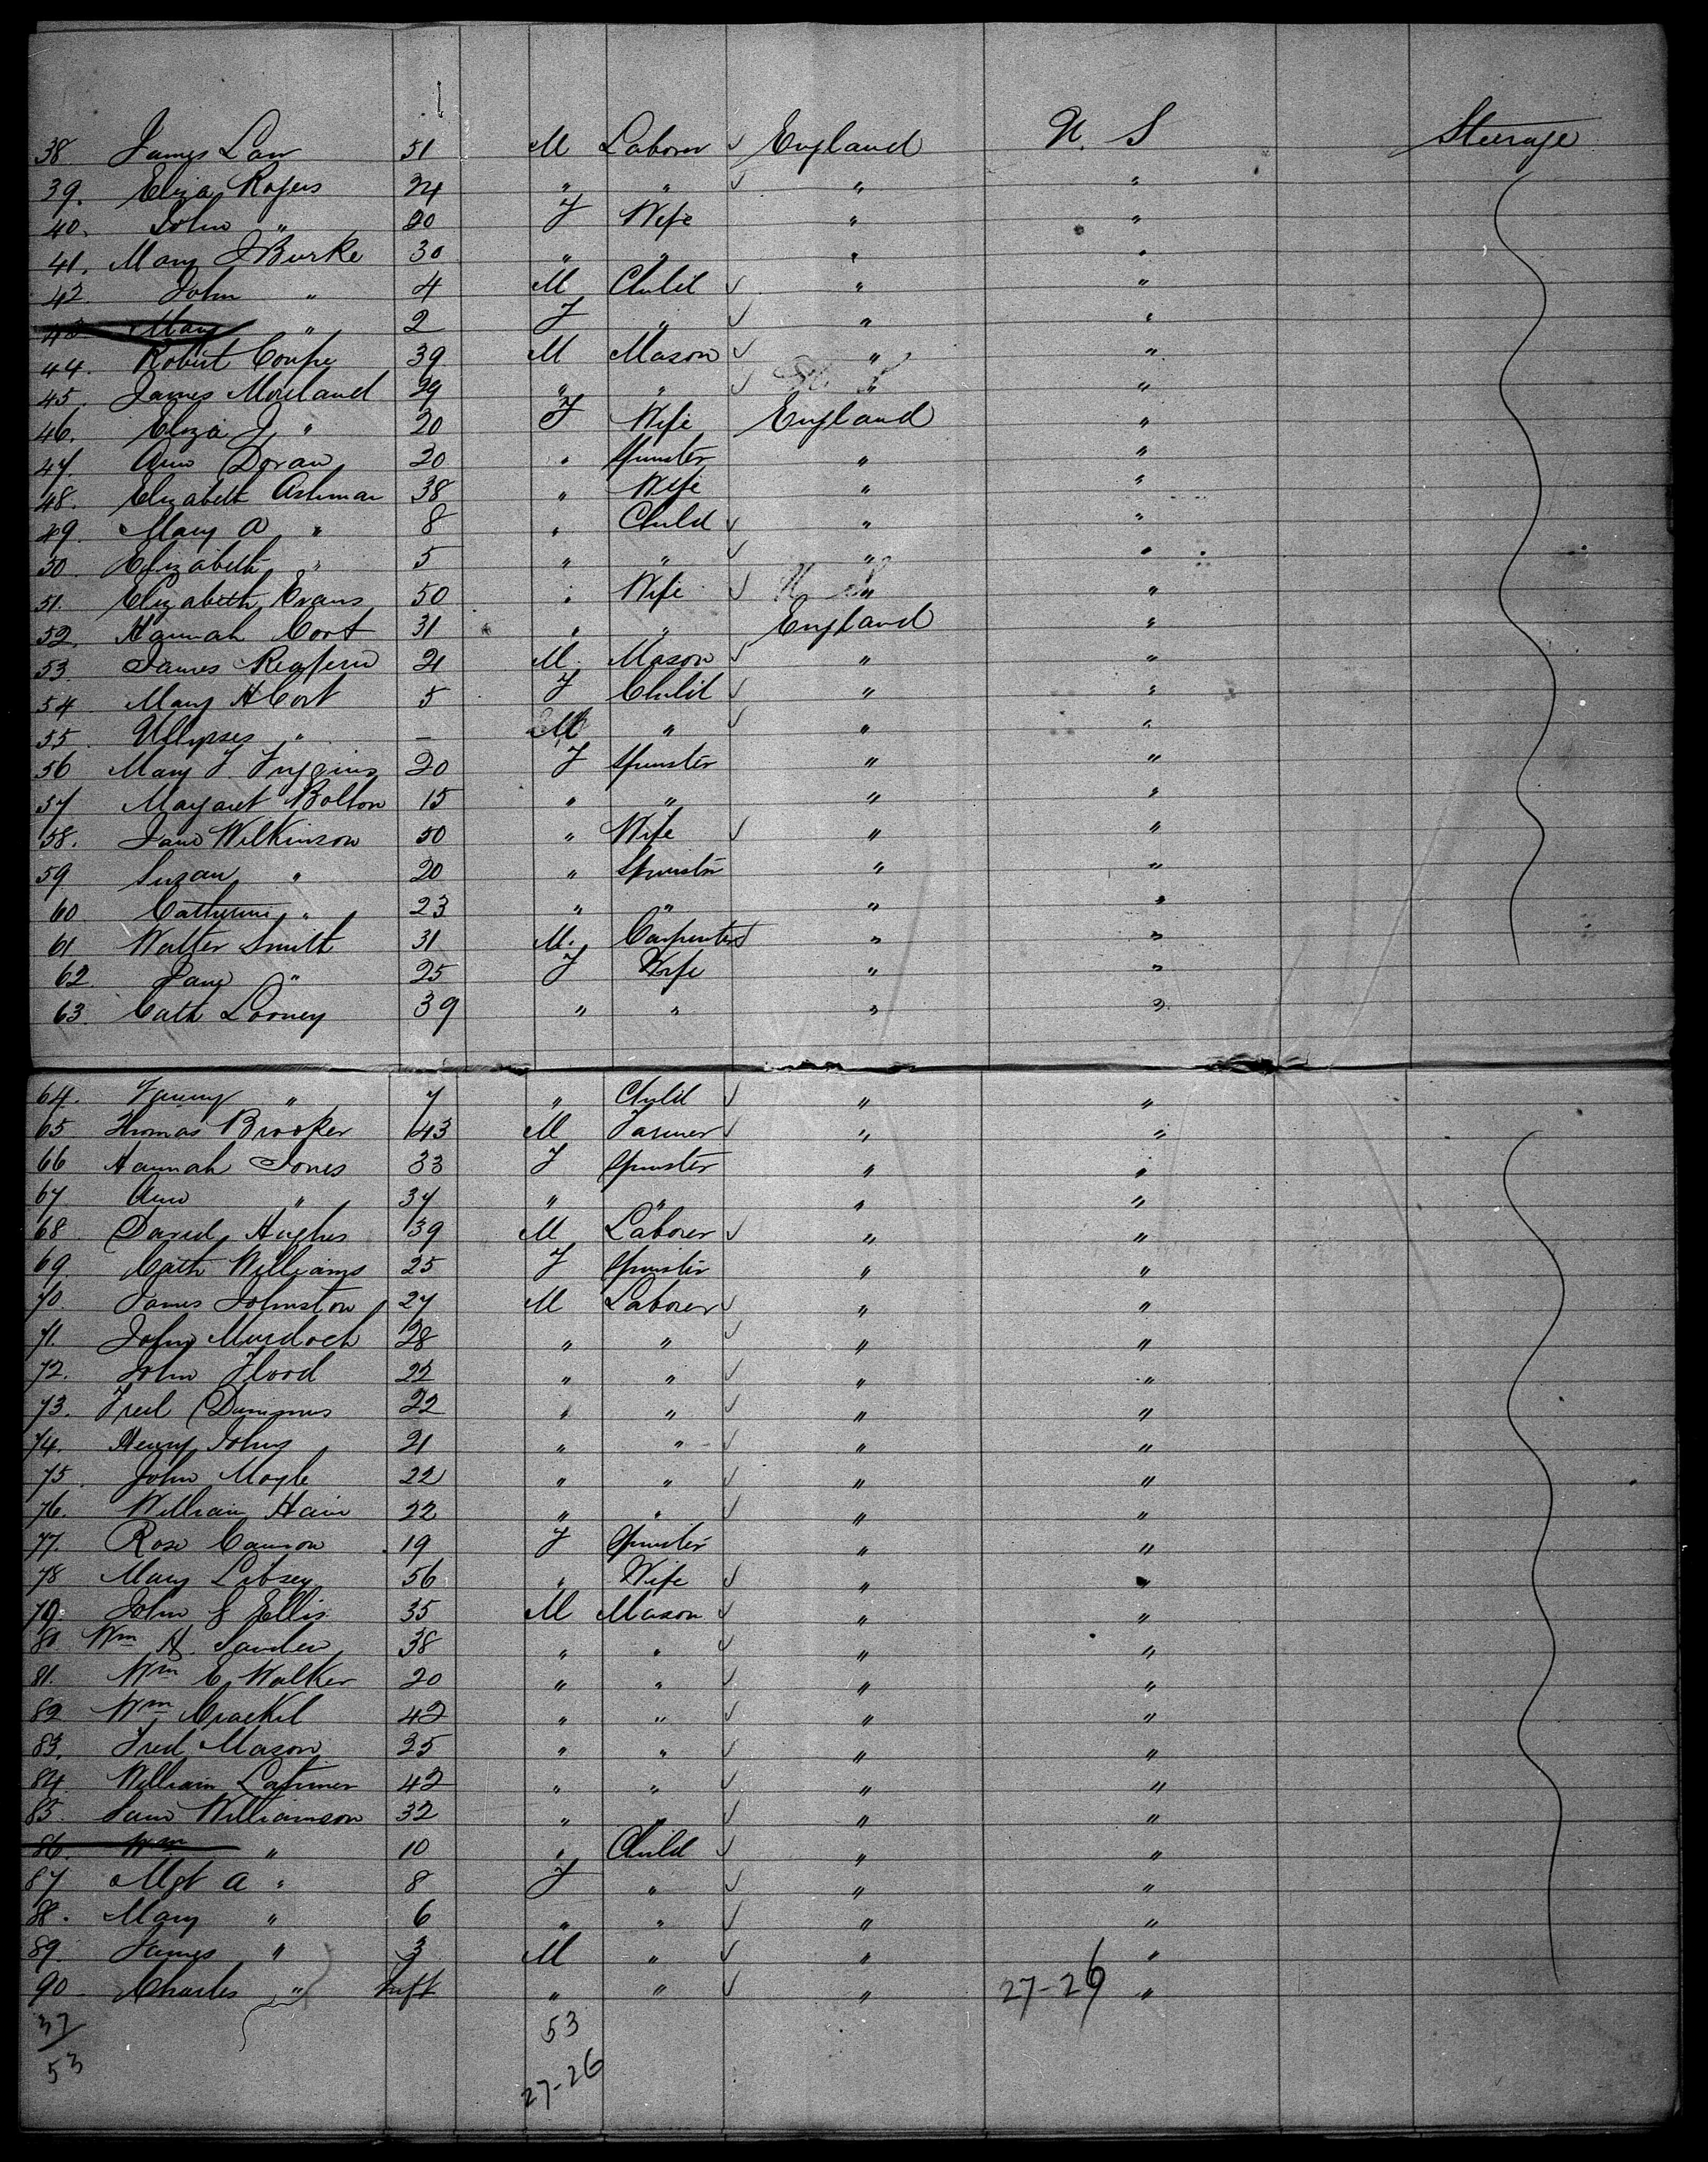 38 James Law 51 M Laborer ✓ England U. S Steerage
39. Eliza Rogers 24 " " ✓ " "
40. John " 20 F Wife " "
41. Mary J Burke 30 " " " "
42. John " 4 M Child ✓ " "
43 Mary " 2 F " ✓ " "
44. Robert Coupe 39 M Mason ✓ " "
45. James Moreland 29 " " ✓ " "
46. Eliza J " 20 F Wife England "
47. Ann Doran 20 " Spinster " "
48. Elizabeth Ashman 38 " Wife " "
49. Mary A " 8 " Child ✓ " "
50. Elizabeth " 5 " " ✓ " "
51. Elizabeth Evans 50 " Wife ✓ U S " "
52. Hannah Cort 31 " " England "
53. James 21 M. Mason ✓ " "
54 Mary H Cort 5 F Child ✓ " "
55. Ullysses " — M " ✓ " "
56 Mary J. 20 F Spinster " "
57 Margaret Bolton 15 " " " "
58. Jane Wilkinson 50 " Wife ✓ " "
59 Suzan " 20 " Spinster " "
60. Catherine " 23 " " " "
61 Walter Smith 31 M. Carpenter ✓ " "
62 Jane " 25 F Wife " "
63. Cath Looney 39 " " " "
64. Fanny " 7 " Child ✓ " "
65 Thomas Brooker 43 M Farmer ✓ " "
66 Hannah Jones 33 F Spinster " "
67 Ann " 34 " " " "
68. David Hughes 39 M Laborer ✓ " "
69 Cath Williams 25 F Spinster " "
70. James Johnston 27 M Laborer ✓ " "
71. John Murdoch 28 " " ✓ " "
72. John Flood 22 " " ✓ " "
73. Fred 22 " " ✓ " "
74. Henry Johns 21 " " ✓ " "
75. John Moyle 22 " " ✓ " "
76. William Hain 22 " " ✓ " "
77. Rose Cannon 19 F Spinster " "
78 Mary Libsey 56 " Wife ✓ " "
79. John S Ellis 35 M Mason ✓ " "
80. Wm H. 38 " " ✓ " "
81. Wm E Walker 20 " " ✓ " "
82 Wm Crackel 42 " " ✓ " "
83. Fred Mason 25 " " ✓ " "
84. William Latimer 42 " " ✓ " "
85. Williamson 32 " " ✓ " "
86. Wm " 10 " Child ✓ " "
87 Mgt A " 8 F " ✓ " "
88. Mary " 6 " " ✓ " "
89. James " 3 M " ✓ " "
90. Charles " Inft " " ✓ " 27-26 "
37 53
53 27-26